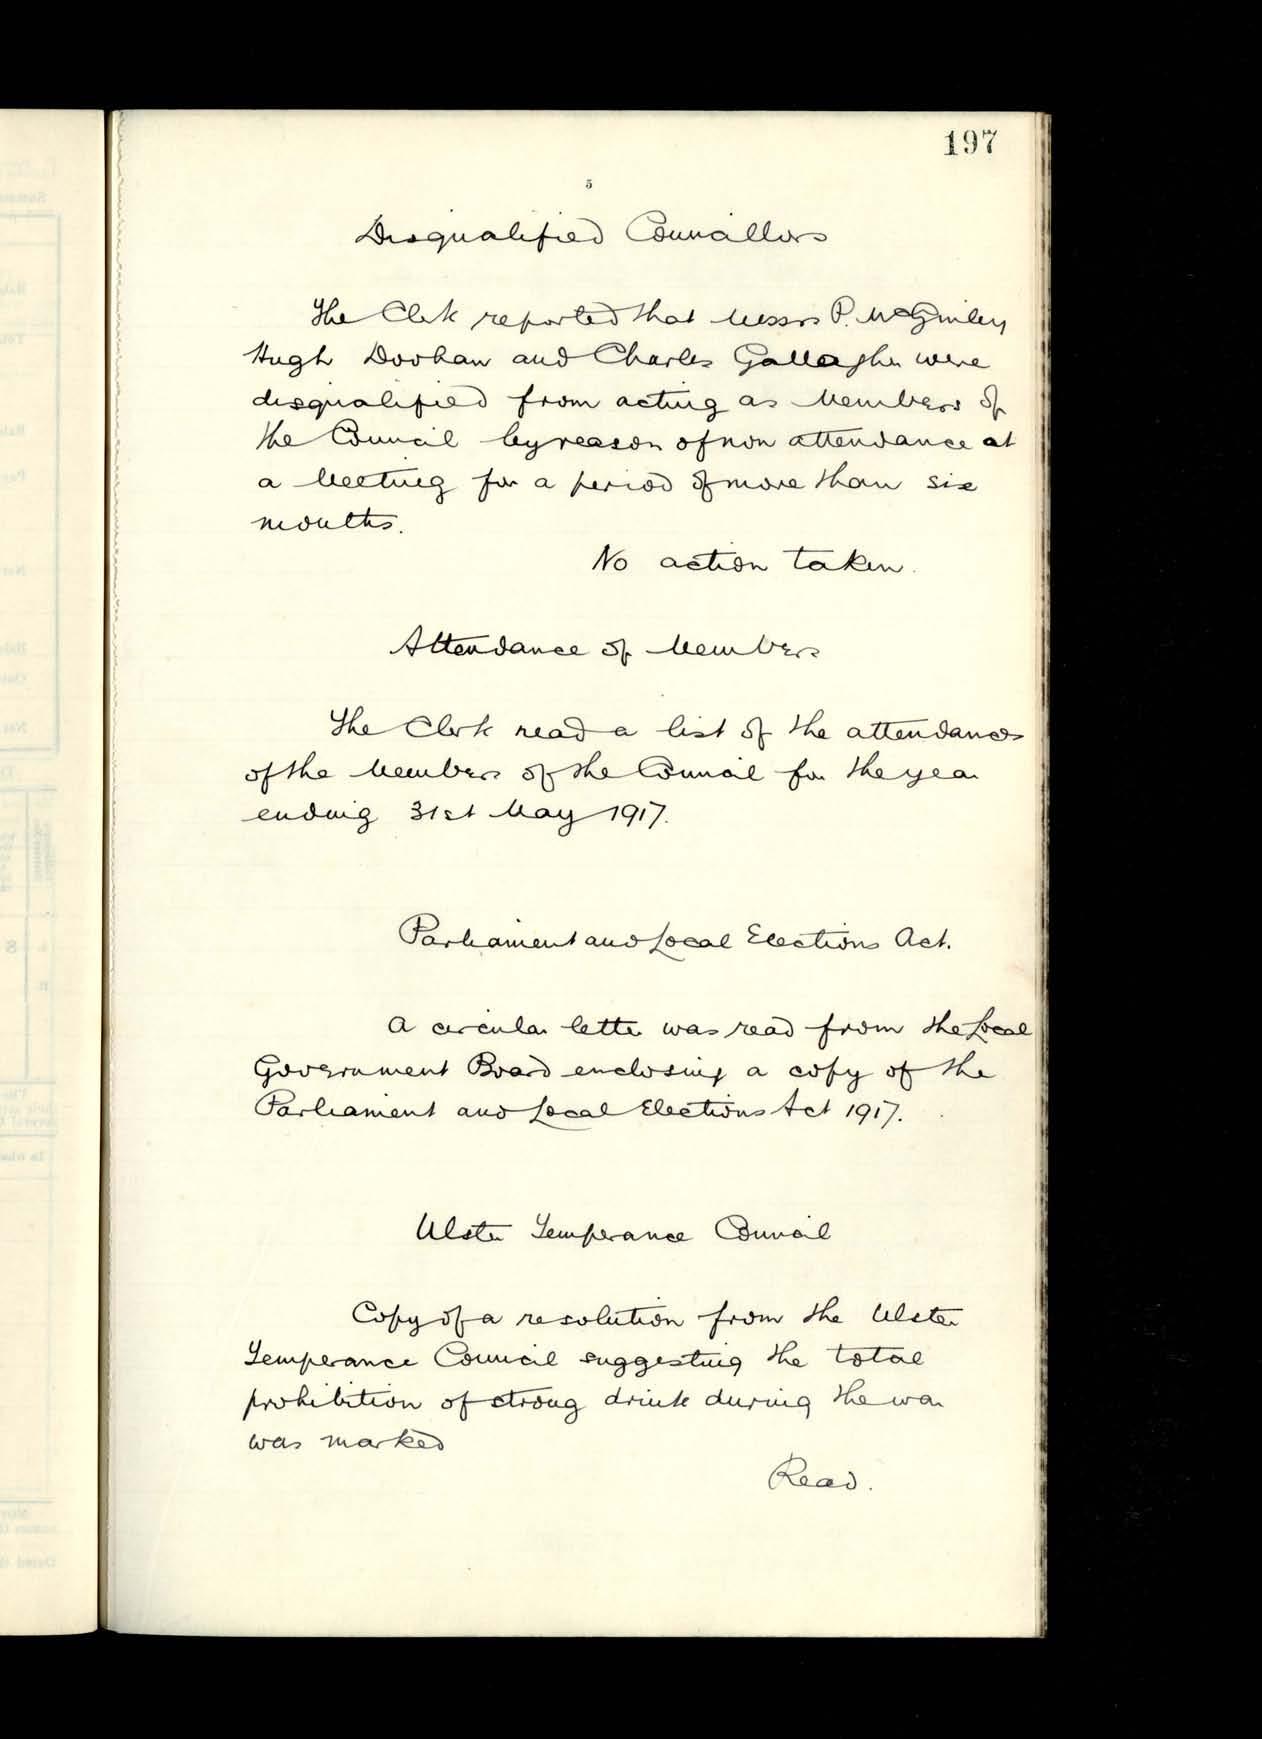 197
5
Disqualified Councillors
The Clerk reported that Messrs P. McGinley
Hugh Doohan and Charles Gallagher were
disqualified from acting as Members of
the Council by reason of non attendance at
a Meeting for a period of more than six
months.
No action taken.
Attendance of Members
The Clerk read a list of the attendances
of the Members of the Council for the year
ending 31st May 1917.
Parliament and Local Elections Act.
A circular letter was read from the Local
Government Board enclosing a copy of the
Parliament and Local Elections Act 1917.
Ulster Temperance Council
Copy of a resolution from the Ulster
Temperance Council suggesting the total
prohibition of strong drink during the war
was marked
Read.